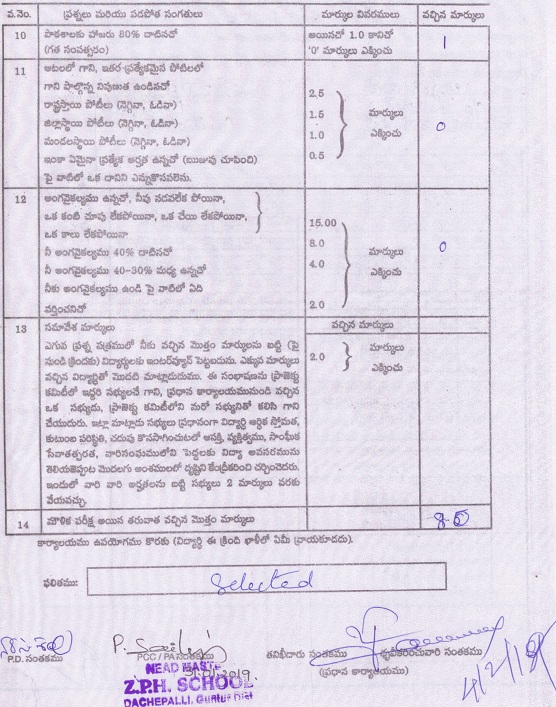 వ.నెం. ప్రశ్నలు మరియు సరపోత సంగతులు మార్కుల వివరములు వచ్చిన మార్కులు
10 పాఠశాలకు హాజరు 80% దాటినచో అయినచో 1.0 కానిచో 1
(గత సంవత్సరం) '0' మార్కులు ఎక్కించు
11 ఆటలలో గాని, ఇతర ప్రత్యేకమైన పోటీలలో
గాని పాల్గొన్న నిపుణుత ఉండినచో 2.5
రాష్ట్రస్తాయి పోటీలు (నెగ్గినా, ఓడినా) 1.5 మార్కులు
జిల్లాస్థాయి పోటీలు (నెగ్గినా, ఓడినా) 1.0 ఎక్కించు 0
మండలస్థాయి పోటీలు (నెగ్గినా, ఓడినా) 0.5
ఇంకా ఏమైనా ప్రత్యేక అర్హత ఉన్నచో (ఋజువు చూపించి)
పై వాటిలో ఒక దానిని ఎన్నుకొనవలెను.
12 అంగవైకల్యము ఉన్నచో, నీవు నడవలేక పోయినా,
ఒక కంటి చూపు లేకపోయినా, ఒక చేయి లేకపోయినా, 15.00
ఒక కాలు లేకపోయినా 8.0
నీ అంగవైకల్యము 40% దాటినచో 4.0 మార్కులు 0
నీ అంగవైకల్యము 40-30% మధ్య ఉన్నచో ఎక్కించు
నీకు అంగవైకల్యము ఉండి పై వాటిలో ఏది 2.0
వర్తించనిచో
13 సమావేశ మార్కులు వచ్చిన మార్కులు
ఎగువ ప్రశ్న పత్రములో నీకు వచ్చిన మొత్తం మార్కులను బట్టి (పై 2.0 మార్కులు
నుండి క్రిందకు) విద్యార్థులకు ఇంటర్వ్యూన్ పెట్టబడును. ఎక్కువ మార్కులు ఎక్కించు
వచ్చిన విద్యార్థితో మొదటి మాట్లాడుదుము. ఈ సంభాషణను ప్రాజెక్టు
కమిటీలో ఇద్దరి సభ్యులచే గాని, ప్రధాన కార్యాలయమునుండి వచ్చిన
ఒక సభ్యుడు, ప్రాజెక్టు కమిటీలోని మరో సభ్యునితో కలిసి గాని
చేయుదురు. ఇట్లా మాట్లాడు సభ్యులు ప్రధానంగా విద్యార్థి ఆర్థిక స్తోమత,
కుటుంబ పరిస్థితి, చదువు కొనసాగించుటలో ఆసక్తి, వ్యక్తిత్వము, సాంఘీక
సేవాతత్పరత, వారిసంఘములోని పెద్దలకు విద్యా అవసరమును
తెలియజెప్పుట మొదలగు అంశములలో దృష్టిని కేంద్రీకరించి చర్చించెదరు.
ఇందులో వారి వారి అర్హతలను బట్టి సభ్యులు 2 మార్కులు వరకు
వేయవచ్చు.
14 మౌళిక పరీక్ష అయిన తరువాత వచ్చిన మొత్తం మార్కులు
కార్యాలయము ఉపయోగము కొరకు (విద్యార్థి ఈ క్రింది ఖాళీలో ఏమీ వ్రాయకూడదు).
ఫలితము: Selected
P.D. సంతకము PCC / PA సంతకము తనిఖీదారు సంతకము ధృవీకరించువారి సంతకము
(ప్రధాన కార్యాలయము)
Z.P.H. SCHOOL
DACHEPALLI, Guntur Dist